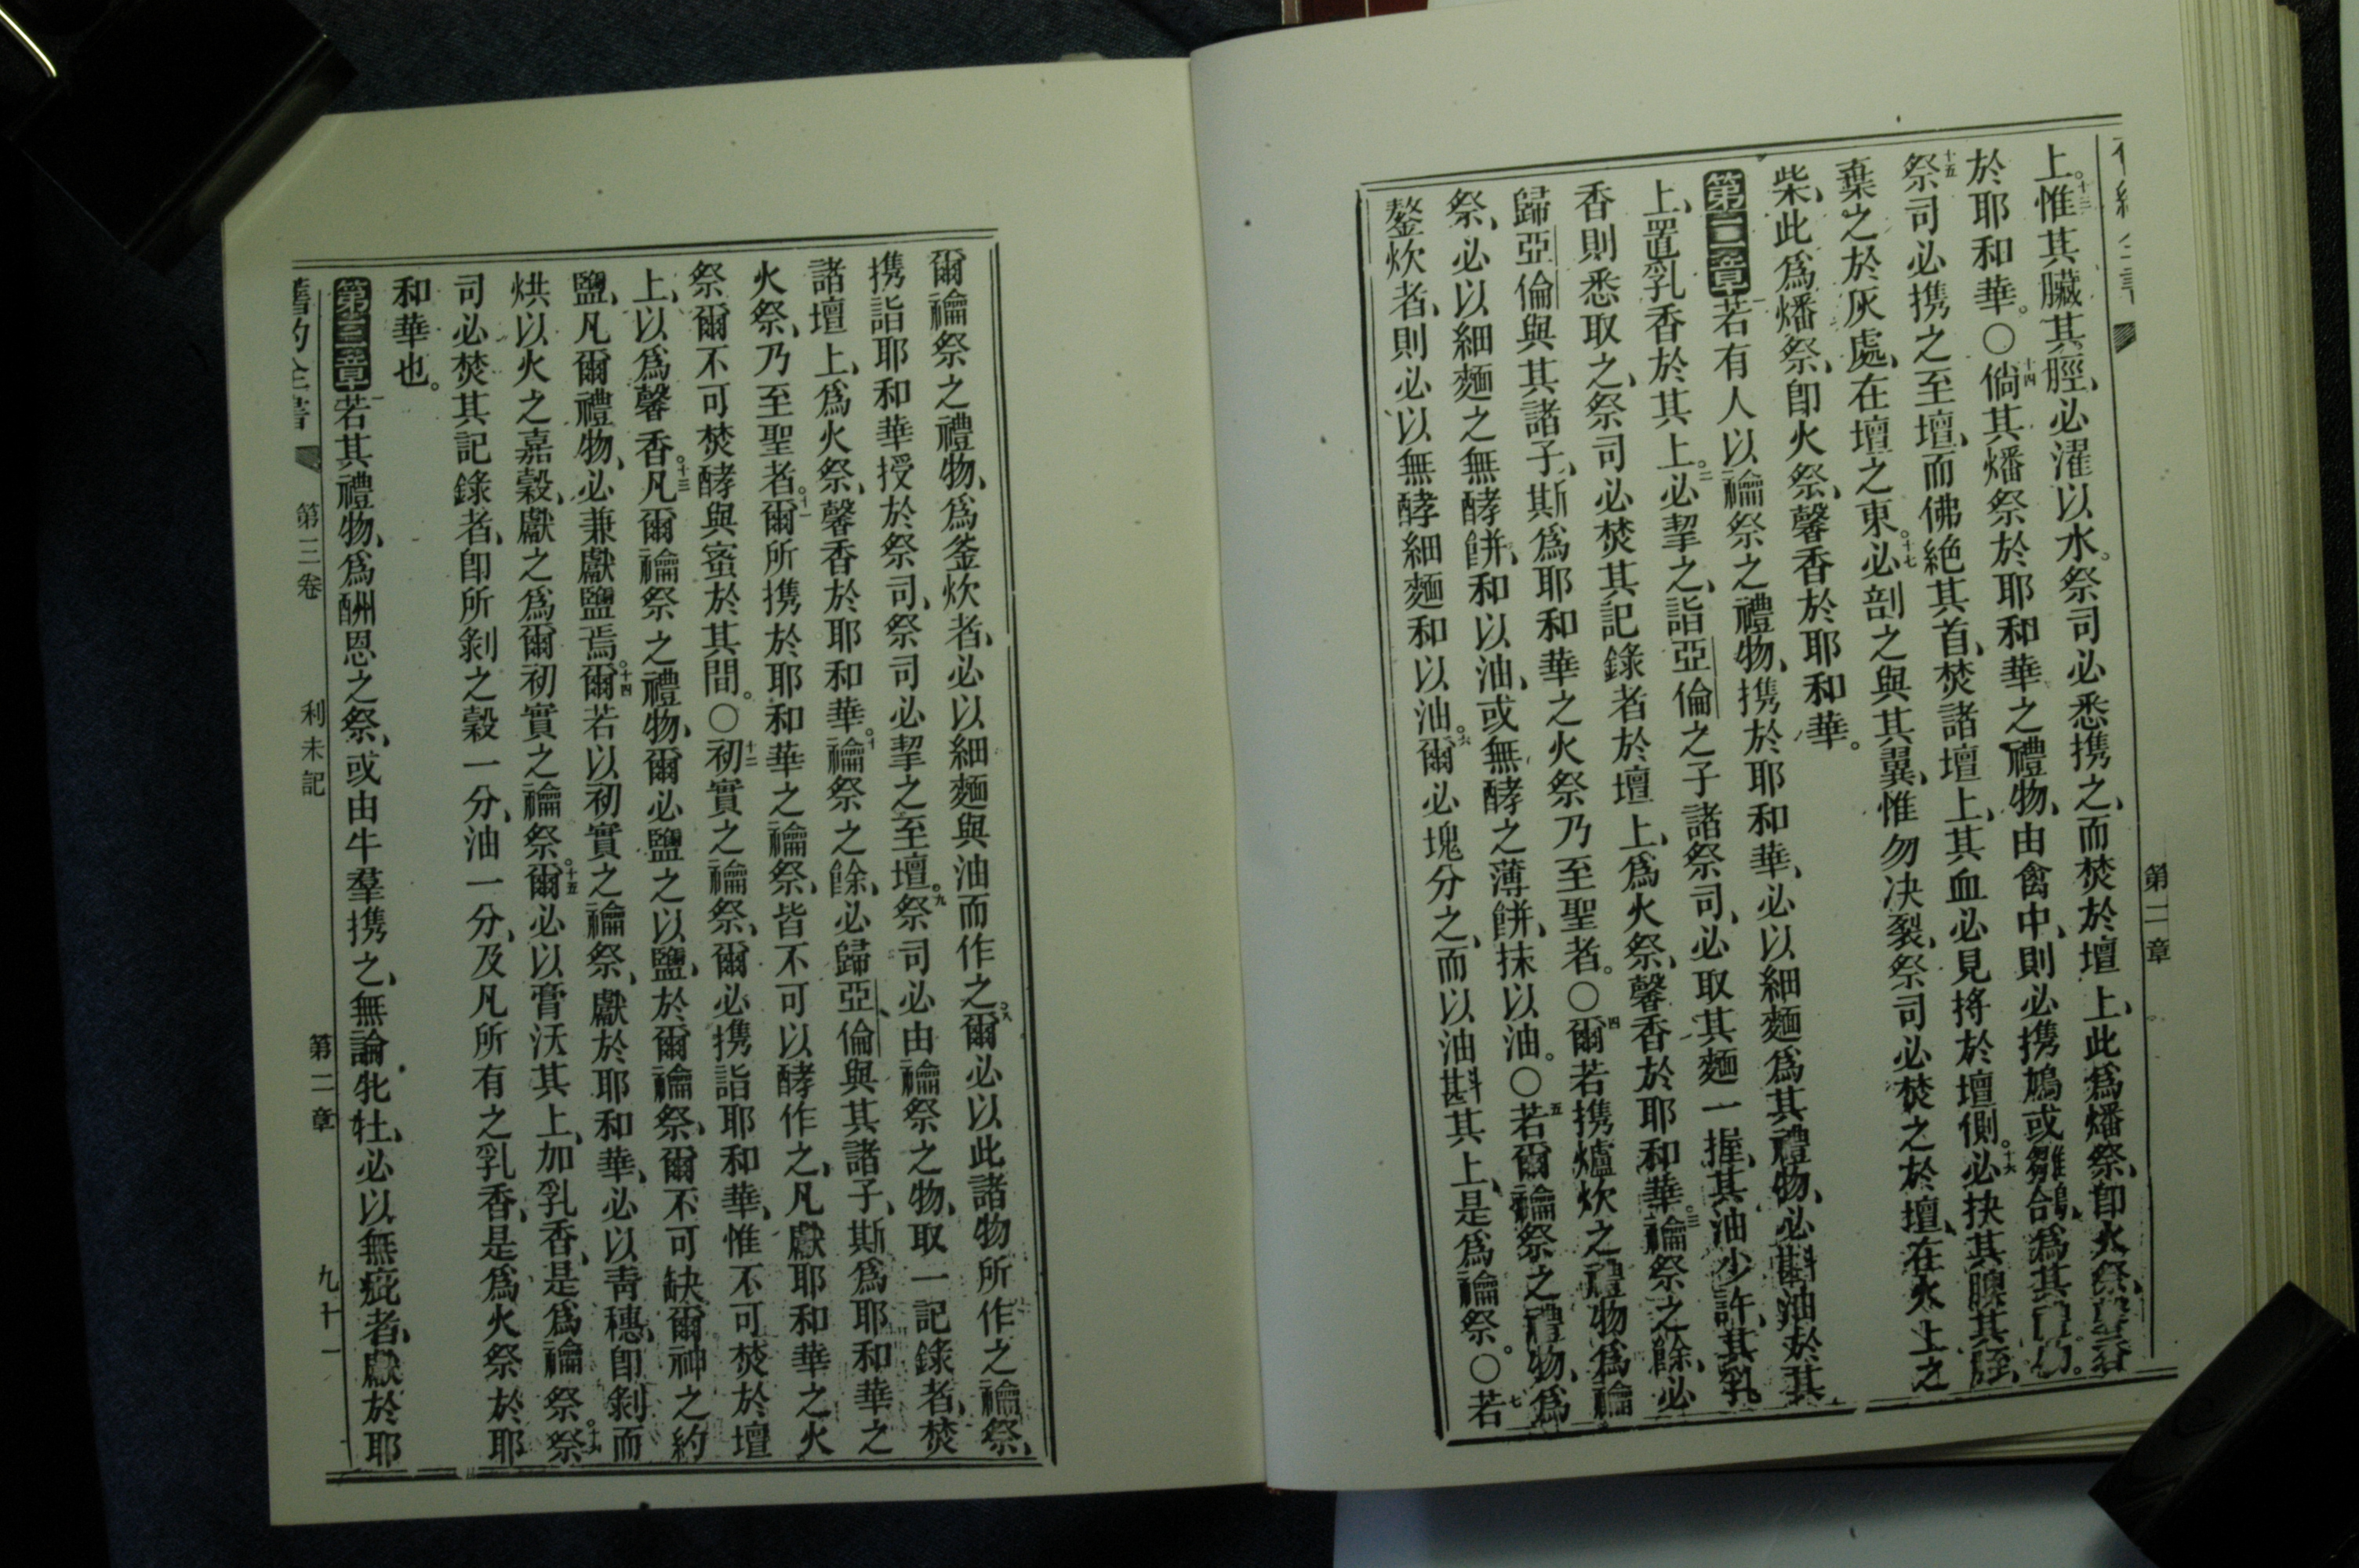 第二章
上。十三惟其臟其脛、必濯以水。祭司必悉携之、而焚於壇上、此爲燔祭、卽火祭、馨香
於耶和華。○十四倘其燔祭於耶和華之禮物、由禽中、則必携鳩或雛鴿、爲其禮物。
十五祭司必携之至壇、而佛絕其首、焚諸壇上、其血必見捋於壇側。十六必抉其膆其脛、
棄之於灰處、在壇之東。十七必剖之與其翼、惟勿决裂、祭司必焚之於壇、在火上之
柴、此爲燔祭、卽火祭、馨香於耶和華。
第二章一若有人以禴祭之禮物、携於耶和華、必以細麵爲其禮物、必斟油於其
上、置乳香於其上。二必挈之、詣亞倫之子諸祭司、必取其麵一握、其油少許、其乳
香則悉取之、祭司必焚其記錄者於壇上、爲火祭、馨香於耶和華。三禴祭之餘、必
歸亞倫與其諸子、斯爲耶和華之火祭乃至聖者。○四爾若携爐炊之禮物爲禴
祭、必以細麵之無酵餠、和以油、或無酵之薄餠、抹以油。○五若爾禴祭之禮物、爲
鏊炊者、則必以無酵細麵和以油。六爾必塊分之、而以油斟其上、是爲禴祭。○七若
爾禴祭之禮物、爲釜炊者、必以細麵與油而作之。八爾必以此諸物所作之禴祭、
携詣耶和華授於祭司、祭司必挈之至壇。九祭司必由禴祭之物、取一記錄者、焚
諸壇上、爲火祭、馨香於耶和華。十禴祭之餘、必歸亞倫與其諸子、斯爲耶和華之
火祭、乃至聖者。十一爾所携於耶和華之禴祭、皆不可以酵作之、凡獻耶和華之火
祭爾不可焚酵與蜜於其間。○十二初實之禴祭、爾必携詣耶和華、惟不可焚於壇
上、以爲馨香。十三凡爾禴祭之禮物、爾必鹽之以鹽、於爾禴祭、爾不可缺爾神之約
鹽、凡爾禮物、必兼獻鹽焉。十四爾若以初實之禴祭、獻於耶和華、必以靑穗、卽剝而
烘以火之嘉穀、獻之爲爾初實之禴祭。十五爾必以膏沃其上、加乳香、是爲禴祭。十六祭
司必焚其記錄者、卽所剝之穀一分、油一分、及凡所有之乳香、是爲火祭於耶
和華也。
第三章一若其禮物、爲酬恩之祭、或由牛羣携之、無論牝牡、必以無疵者、獻於耶
舊約全書 第三卷 利未記 第二章 九十一